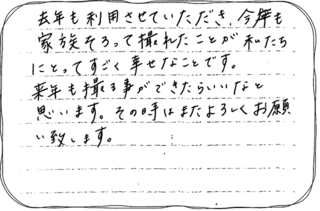 去年も利用させていただき、今年も
家族そろって撮れたことが私たち
にとってすごく幸せなことです。
来年も撮る事ができたらいいなと
思います。その時はまたよろしくお願
い致します。